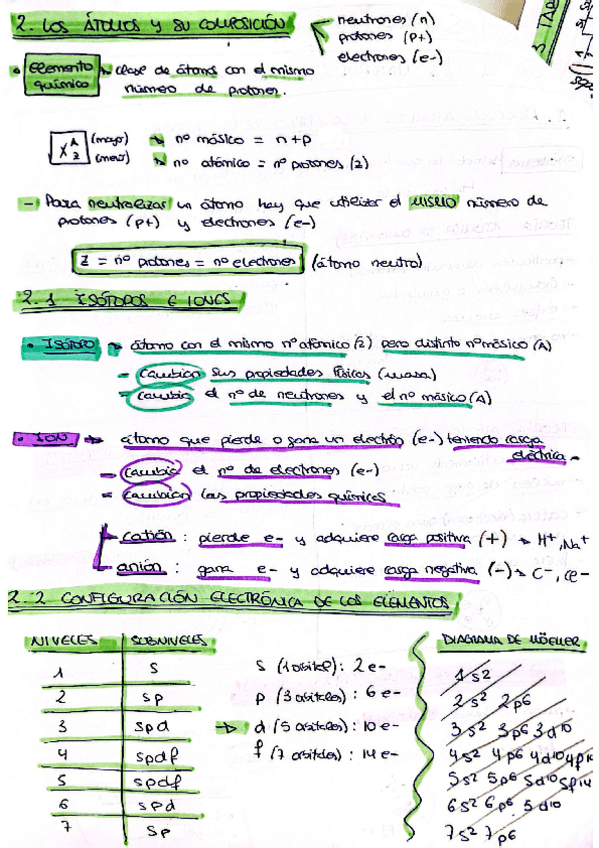 2. LOS ÁTOMOS Y SU COMPOSICIÓN
neutrones (n)
protones (p+)
electrones (e-)
• elemento químico → clase de átomos con el mismo
número de protones.
X A Z (mayor) → nº másico = n+p
(menor) → nº atómico = nº protones (z)
- Para neutralizar un átomo hay que utilizar el MISMO número de
protones (p+) y electrones (e-)
Z = nº protones = nº electrones (átomo neutro)
2.1 ISÓTOPOS E IONES
• ISÓTOPO → átomo con el mismo nº atómico (z) pero distinto nº másico (A)
- Cambian sus propiedades físicas (masa)
- Cambia el nº de neutrones y el nº másico (A)
• ION → átomo que pierde o gana un electrón (e-) teniendo carga
eléctrica.
- Cambia el nº de electrones (e-)
- Cambian las propiedades químicas
catión : pierde e- y adquiere carga positiva (+) → H+, Na+
anión : gana e- y adquiere carga negativa (-) → C-, Ce-
2.2 CONFIGURACIÓN ELECTRÓNICA DE LOS ELEMENTOS
NIVELES SUBNIVELES
1 S
2 sp
3 spd
4 spdf
5 spdf
6 spd
7 sp
→
s (1 orbital) : 2 e-
p (3 orbitales) : 6 e-
d (5 orbitales) : 10 e-
f (7 orbitales) : 14 e-
DIAGRAMA DE MÖELLER
1s2
2s2 2p6
3s2 3p6 3d10
4s2 4p6 4d10 4f14
5s2 5p6 5d10 5f14
6s2 6p6 5d10
7s2 7p6